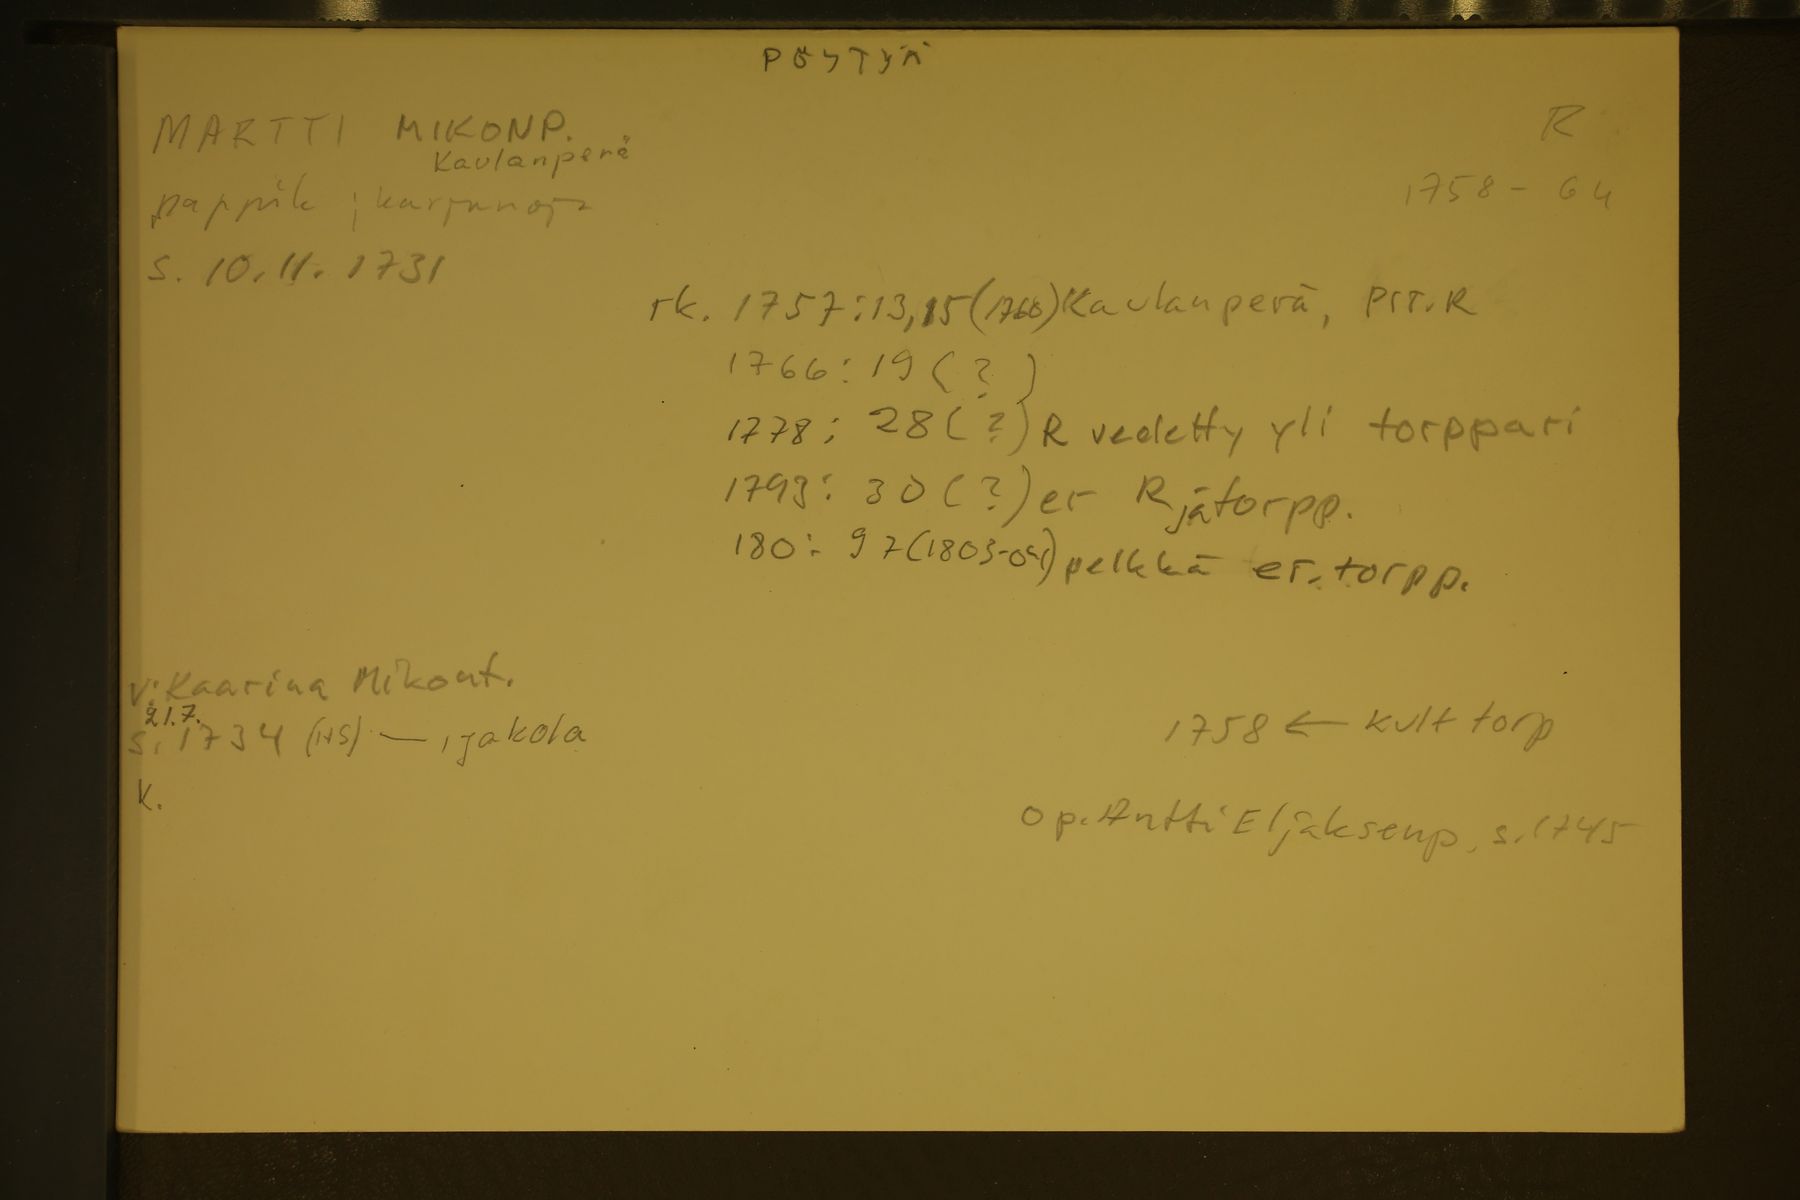 PÖYTYÄ
MARTTI MIKONP.
Kaulanperä
R
pappik ; karjanoja
1758 - 64
s. 10.11. 1731
rk. 1757:13,15(1760)Kaulanperä, PIT.R
1766: 19 (?)
1778: 28 (?) R vedetty yli torppari
1793: 30 (?) er R jä torpp.
180: 97(1803-04) pelkkä er. torpp.
v: Kaarina Mikont.
21.7.
s. 1734 (HS) — , jakola
1758 ← kult torp
K.
op. Antti Eljaksenp, s. 1745